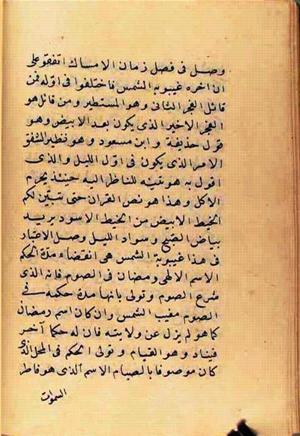 وصل فى فصل زمان الامساك اتفقوا على
ان آخره غيبوبة الشمس فاختلفوا فى اوله فمن
قائل الفجر الثانى وهو المستطير ومن قائل هو
الفجر الاخير الذى يكون بعد الابيض وهو
قول حذيفة وابن مسعود وهو نظير الشفق
الاحمر الذى يكون فى اول الليل والذى
اقول به هو تبينه للناظر اليه حينئذ يحرم
الاكل وهذا هو نص القران حتى يتبين لكم
الخيط الابيض من الخيط الاسود يريد
بياض الصبح وسواد الليل وصل الاعتبار
فى هذا غيبوبة الشمس هى انقضاء مدة حكم
الاسم الالهى رمضان فى الصوم فانه الذى
شرع الصوم وتولى بانها مدة حكمه فى
الصوم مغيب الشمس وان كان اسم رمضان
كما هو لم يزل عن ولايته فان له حكما آخر
فيناد وهو القيام وتولى الحكم فى المحل الذى
كان موصوفا بالصيام الاسم الذى هو فاطر
السموات